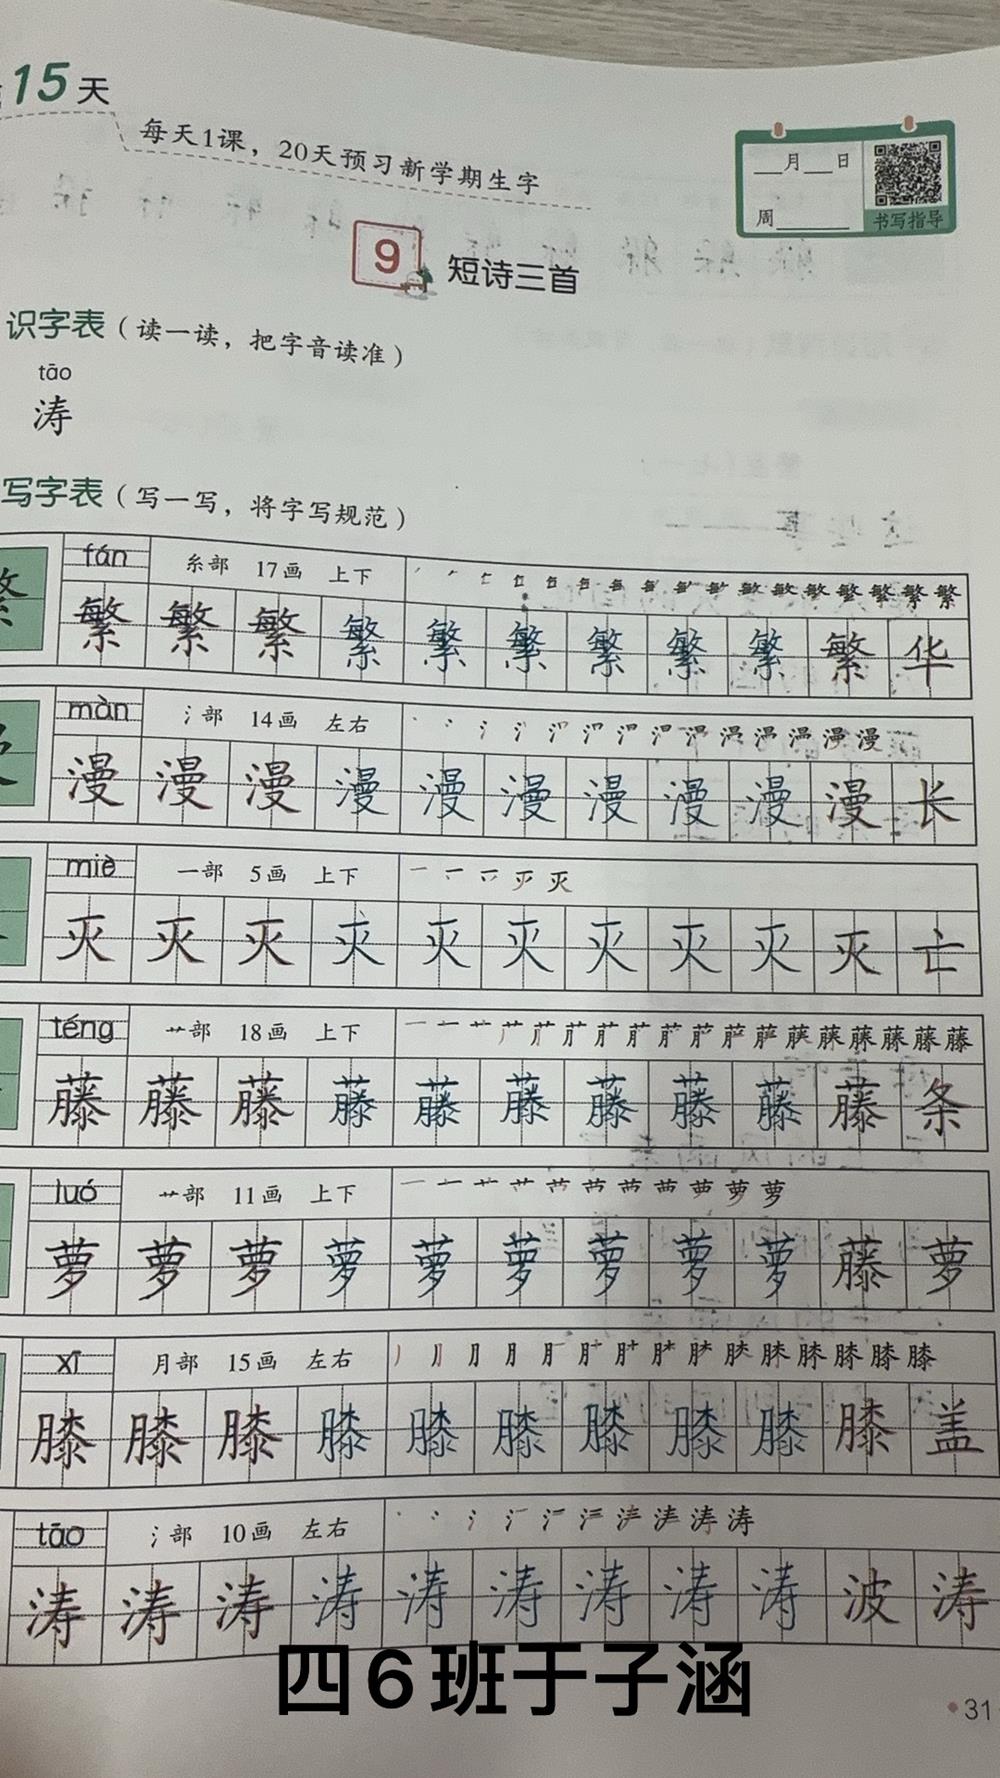 15天
每天1课，20天预习新学期生字
月 日
周
书写指导
9 短诗三首
识字表（读一读，把字音读准）
tāo
涛
写字表（写一写，将字写规范）
fán 糸部 17画 上下
繁 繁 繁 繁 繁 繁 繁 繁 繁 繁 华
màn 氵部 14画 左右
漫 漫 漫 漫 漫 漫 漫 漫 漫 漫 长
miè 一部 5画 上下
灭 灭 灭 灭 灭 灭 灭 灭 灭 灭 亡
téng 艹部 18画 上下
藤 藤 藤 藤 藤 藤 藤 藤 藤 藤 条
luó 艹部 11画 上下
萝 萝 萝 萝 萝 萝 萝 萝 萝 藤 萝
xī 月部 15画 左右
膝 膝 膝 膝 膝 膝 膝 膝 膝 膝 盖
tāo 氵部 10画 左右
涛 涛 涛 涛 涛 涛 涛 涛 涛 波 涛
四6班于子涵
31